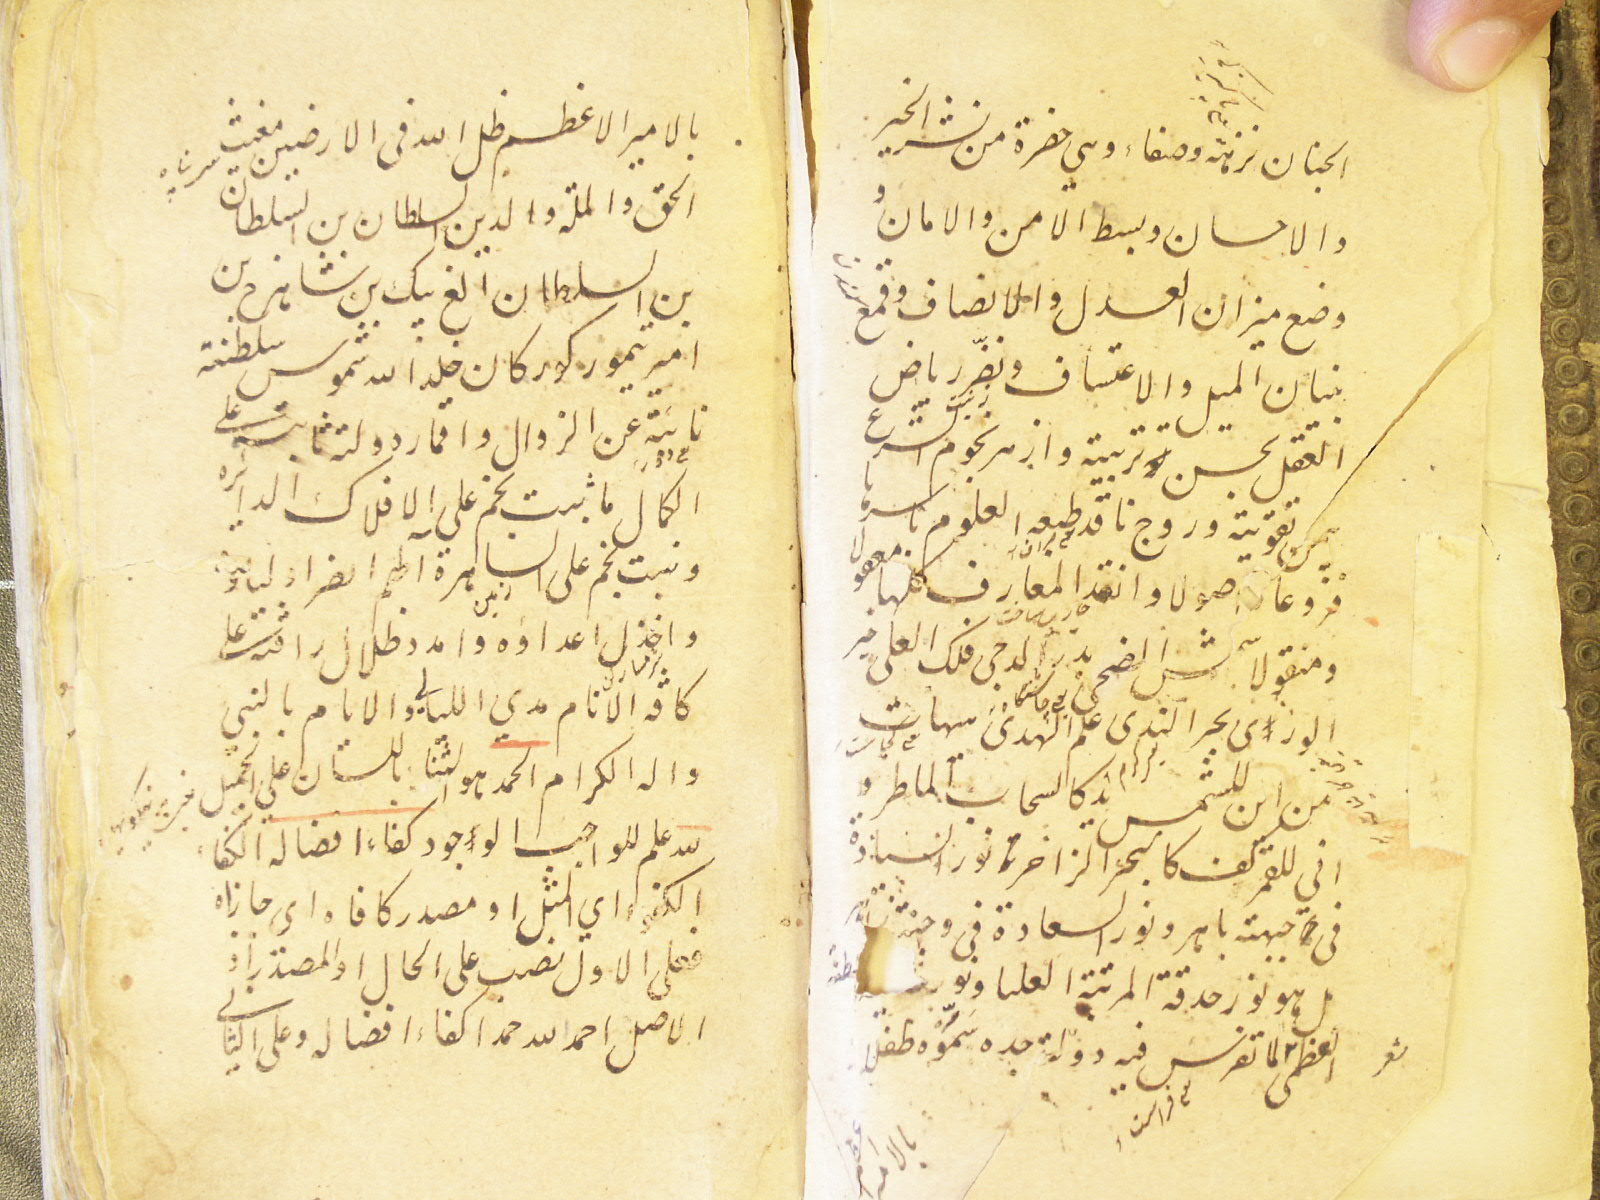 الجنان نزهة وصفاء وهي خضرة من نشر الخير
والاحسان وبسط الامن والامان و
وضع ميزان العدل والانصاف وقمع
بنيان الميل والاعتساف ونضّر رياض
العقل بحسن تربيته وازهر نجوم الشرع
بتقويته وروج ناقد طبعه العلوم باسرها
فروعا واصولا وانقد المعارف كلها معقولا
ومنقولا شمس الضحى بدر الدجى فلك العلى خير
الورى بحر الندى علم الهدى هيهات
من اين للشمس يد كالسحاب الماطر و
انى للقمر كف كالبحر الزاخر نور السيادة
في جبهته باهر ونور السعادة في وجنته
بل هو نور حدقة المرتبة العليا ونور
العظمى لما تفرس فيه دولة جده سمّوه طفلا
شعر
بالامير
بالامير الاعظم ظل الله فى الارضين مغيث
الحق والملة والدين السلطان بن السلطان
بن السلطان الغ بيك بن شاهرخ بن
امير تيمور كوركان خلد الله شموس سلطنته
نائية عن الزوال واقمار دولته ثابتة على
الكمال ما ثبت نجم على الافلاك الدائرة
ونبت نجم على الساهرة اللهم انصر اولياؤه
واخذل اعداؤه وامدد ظلال رافته على
كافة الانام مدي الليالي والايام بالنبي
واله الكرام الحمد هو الثناء باللسان على الجميل
لله علم للواجب الوجود كفاء افضاله الكفاء
الكفو اي المثل او مصدر كافاه اى جازاه
فعلى الاول نصب على الحال او المصدر اذ
الاصل احمد الله حمدا كفاء افضاله وعلى الثاني